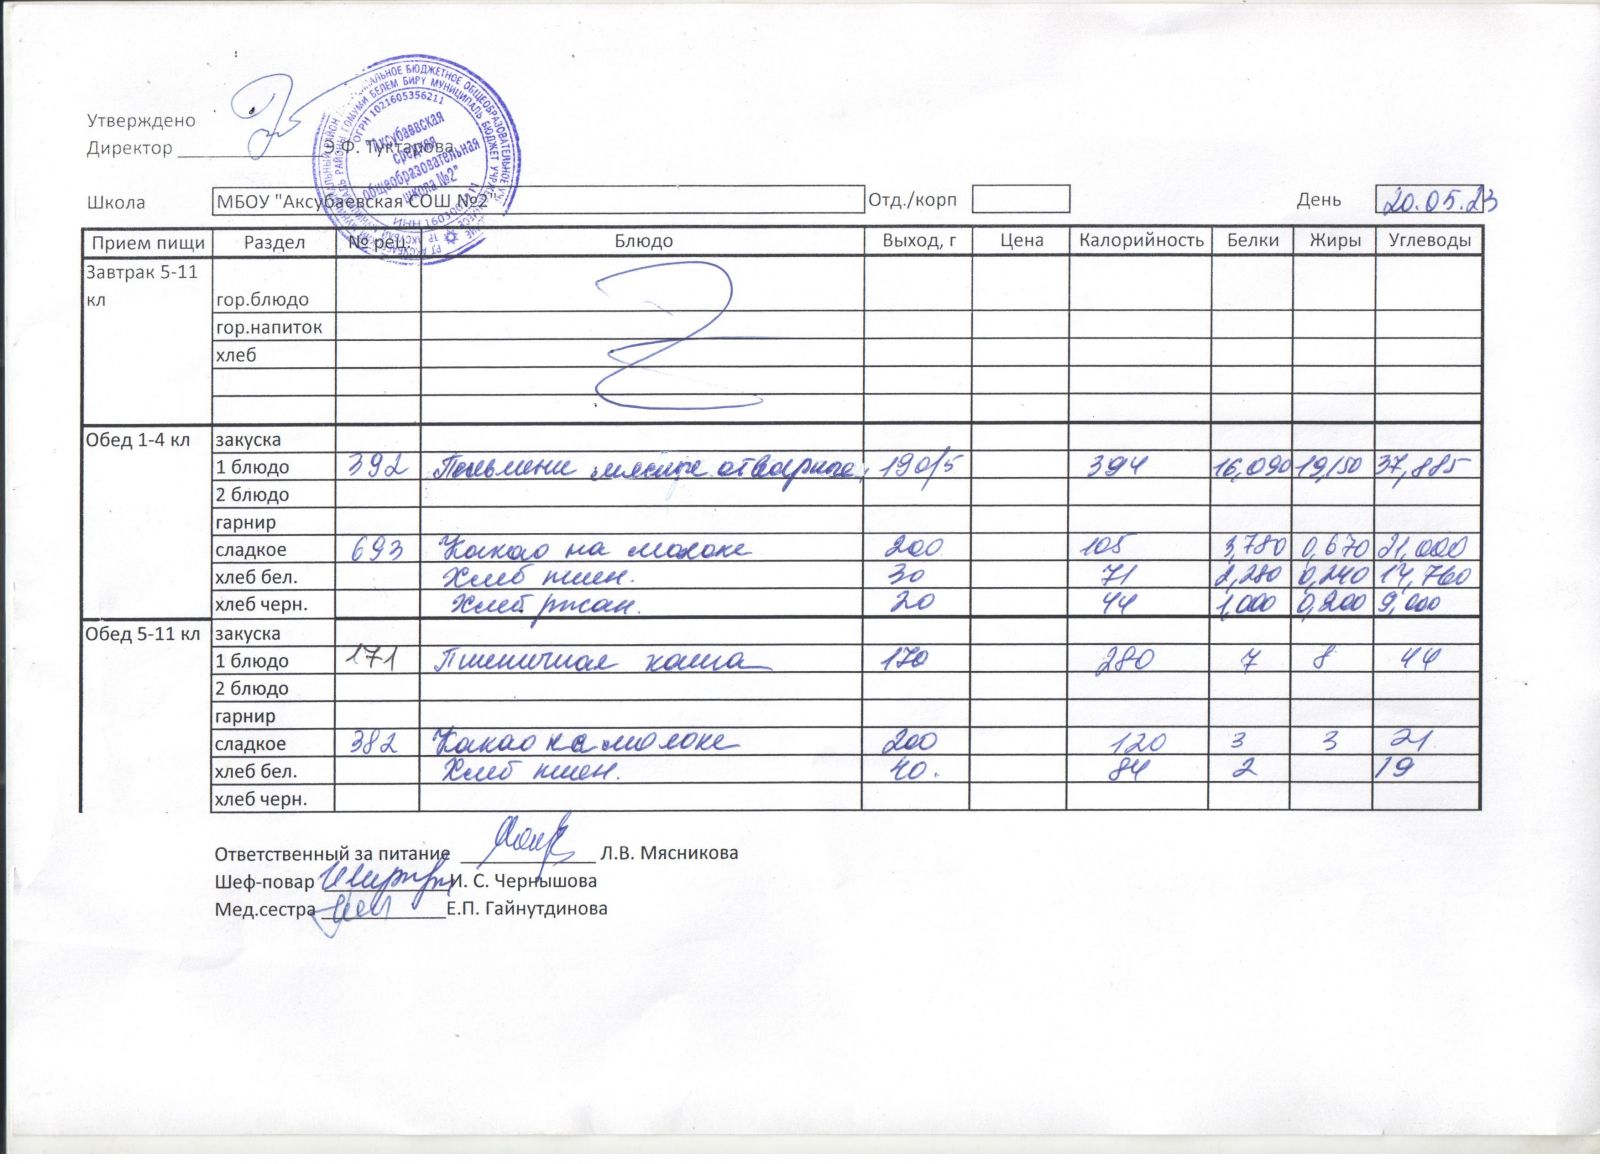 Утверждено
Директор Э.Ф. Туктарова
МУНИЦИПАЛЬНОЕ БЮДЖЕТНОЕ ОБЩЕОБРАЗОВАТЕЛЬНОЕ
ГОМУМИ БЕЛЕМ БИРҮ МУНИЦИПАЛЬ БЮДЖЕТ
ОГРН 1021605356211
"Аксубаевская
средняя
общеобразовательная
школа №2"
Школа МБОУ "Аксубаевская СОШ №2" Отд./корп День 20.05.23
Прием пищи Раздел № рец. Блюдо Выход, г Цена Калорийность Белки Жиры Углеводы
Завтрак 5-11
кл гор.блюдо
гор.напиток
хлеб
Обед 1-4 кл закуска
1 блюдо 392 Пельмени мясные отварные 190/5 394 16,090 19,150 37,885
2 блюдо
гарнир
сладкое 693 Какао на молоке 200 105 3,780 0,670 21,000
хлеб бел. Хлеб пшен. 30 71 2,280 0,240 14,760
хлеб черн. Хлеб ржан. 20 44 1,000 0,200 9,000
Обед 5-11 кл закуска
1 блюдо 171 Пшеничная каша 170 280 7 8 44
2 блюдо
гарнир
сладкое 382 Какао на молоке 200 120 3 3 21
хлеб бел. Хлеб пшен. 40. 84 2 19
хлеб черн.
Ответственный за питание Л.В. Мясникова
Шеф-повар И. С. Чернышова
Мед.сестра Е.П. Гайнутдинова